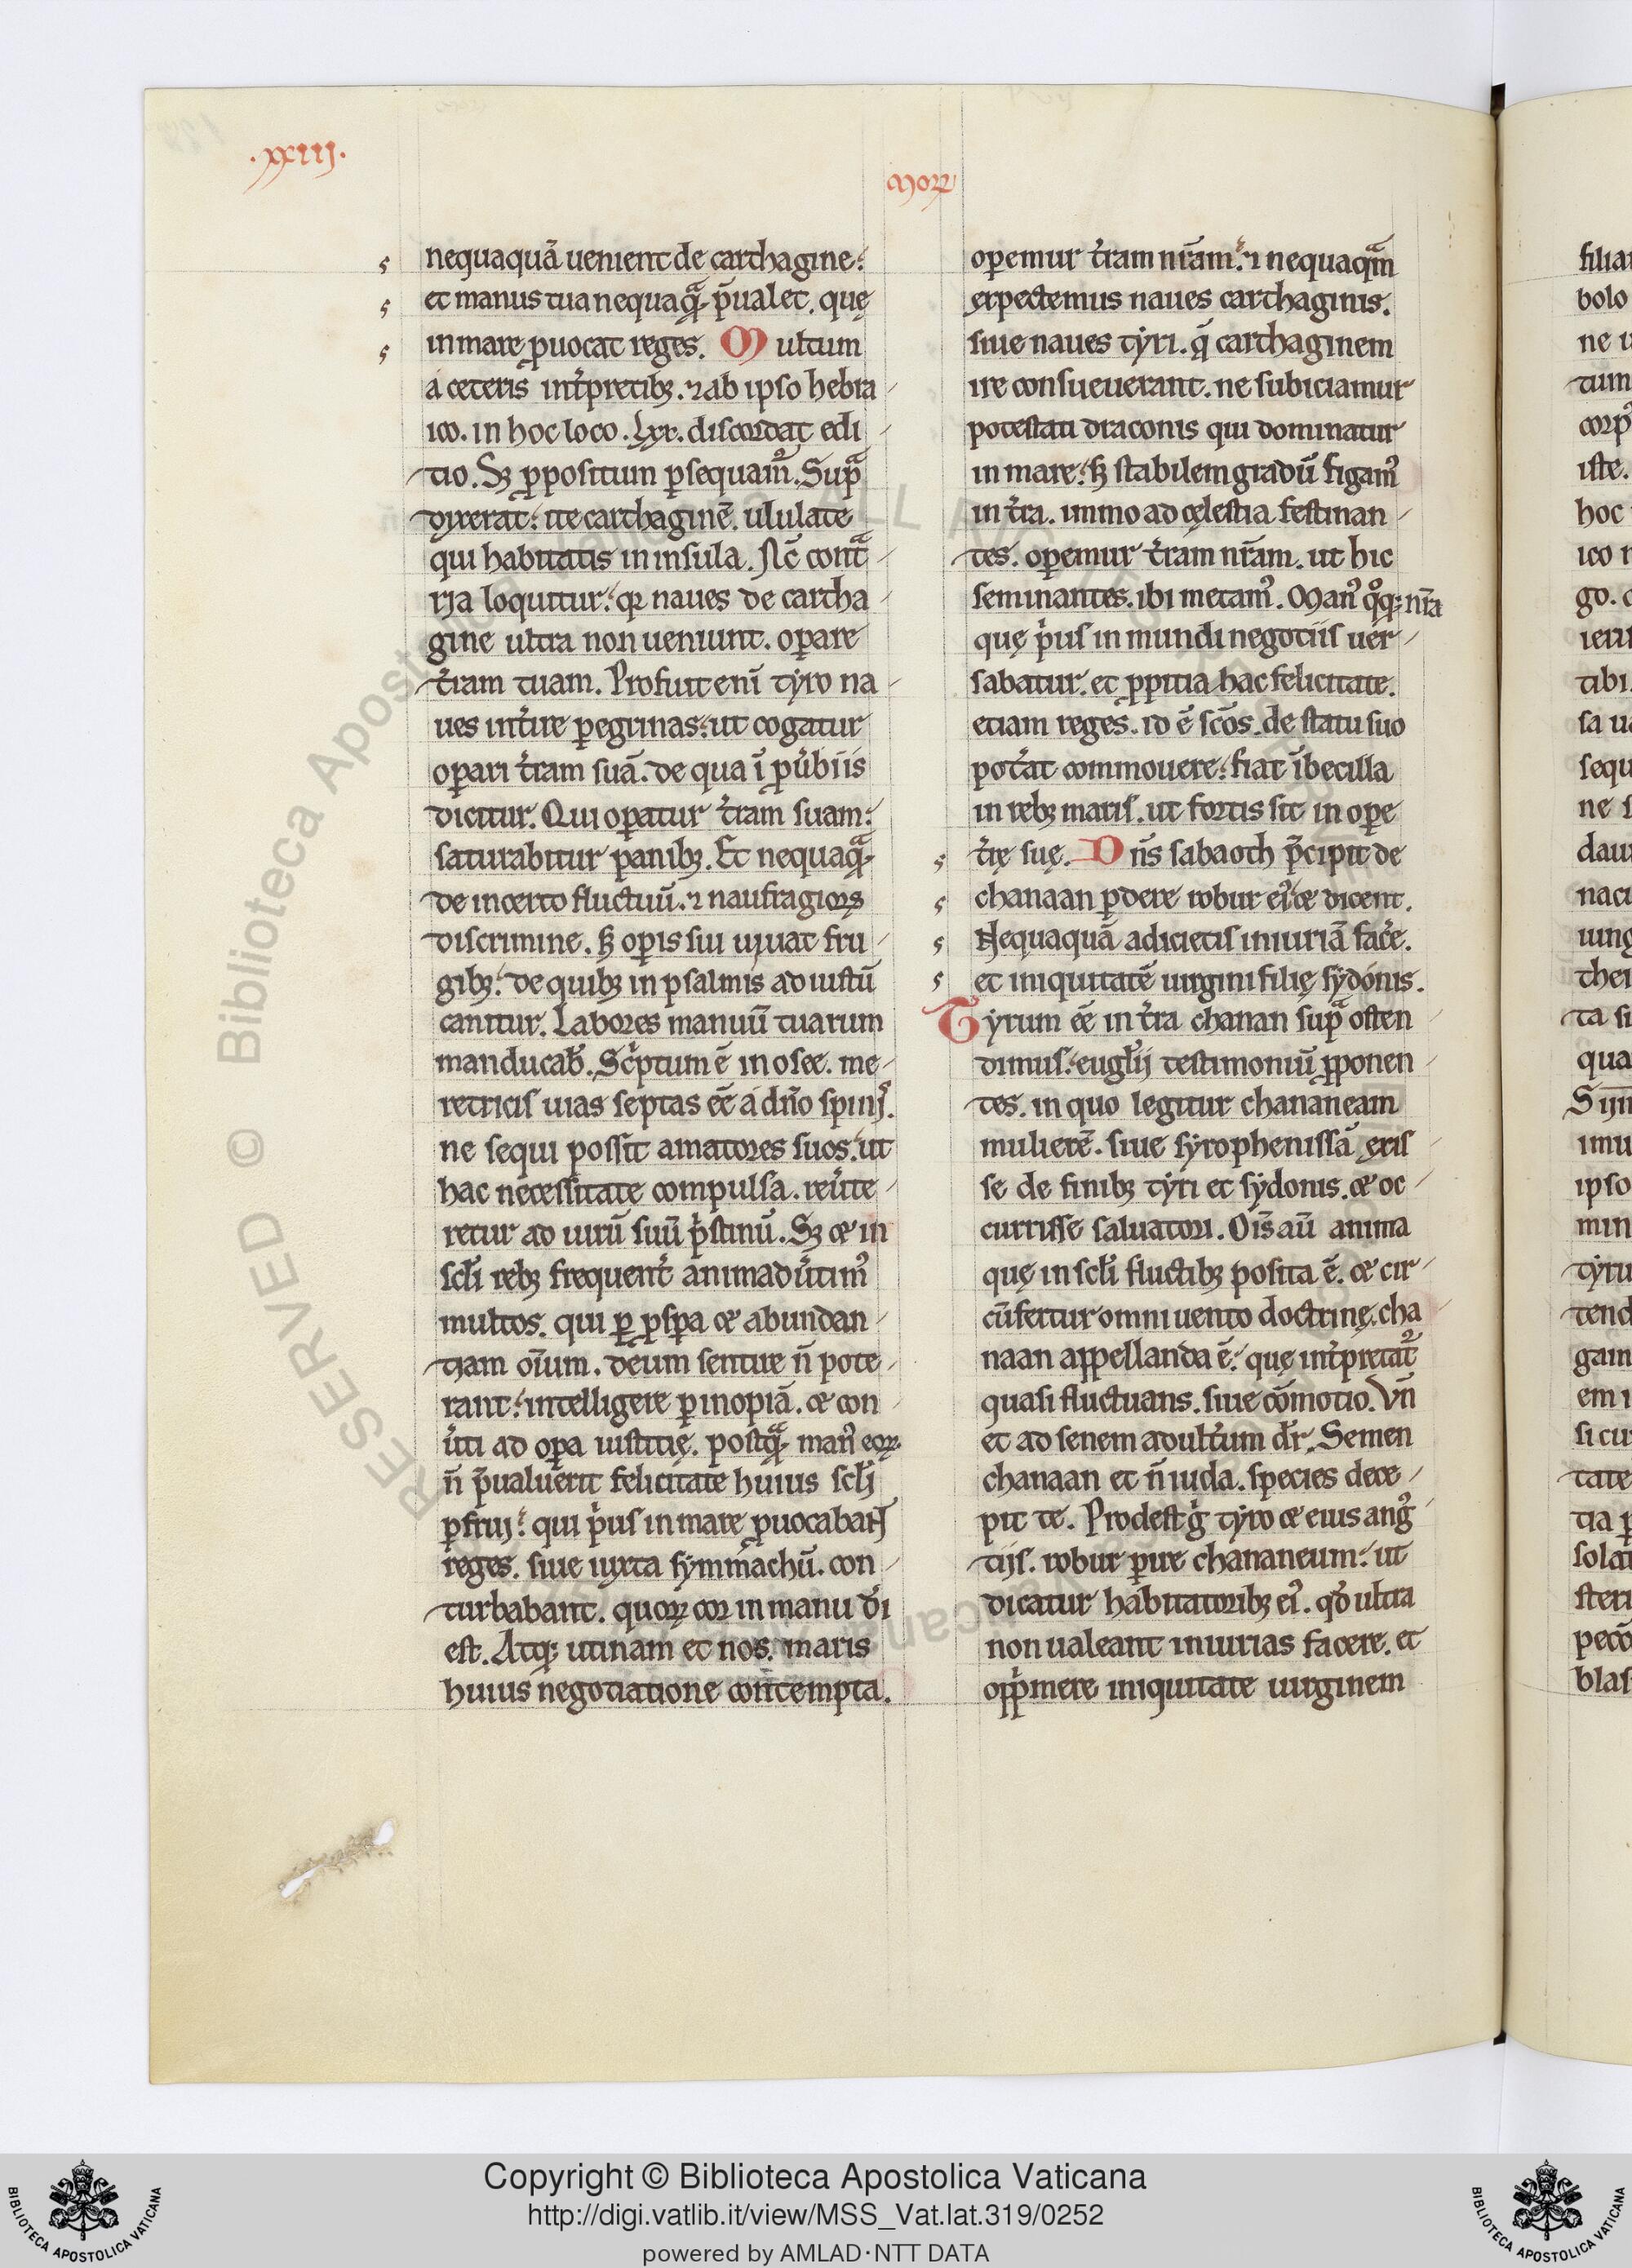 .xxiii.
morum
nequaquā uenient de carthagine.
et manus tua nequaqᷓ p̄ualet. quę
in mare ꝓuocat reges. Multum
a ceteris int̉pretibꝫ. ⁊ ab ipso hebra
ico. in hoc loco. lxx. discordat edi
tio. Sꝫ ꝓpositum ꝑsequam᷒. Supᷓ
dixerat. ite carthaginē. ululate
qui habitatis in insula. Nc̄ contᷓ
ria loquitur. qꝛ naues de cartha
gine ultra non ueniunt. oꝑare
t̉ram tuam. Profuit eni̅ tyro na
ues int̉ire ꝑegrinas. ut cogatur
oꝑari t̉ram suā. de qua i̅ ꝓủbiis
dicitur. Qui oꝑatur t̉ram suam.
saturabitur panibꝫ. Et nequaqᷓ
de incerto fluctuū. ⁊ naufragioꝝ
discrimine. sꝫ oꝑis sui uiuat fru
gibꝫ. de quibꝫ in psalmis ad iustū
canitur. Labores manuū tuarum
manducab̄. Scͥptum ē in osee. me
retricis uias septas eē a dn̄o spinis.
ne sequi possit amatores suos. ut
hac necessitate compulsa. reủte
retur ad uirū suū pͥstinū. Sꝫ ⁊ in
sc̄li rebꝫ frequent̉ animadủtim᷒
multos. qui ꝑ ꝓsꝑa ⁊ abundan
tiam oīum. deum sentire n̄ pote
rant. intelligere ꝑ inopiā. ⁊ con
ủti ad oꝑa iustitię. postqᷓ man᷒ eoꝝ
n̄ p̄ualuerit felicitate huius sc̄li
ꝑfrui. qui pͥus in mare ꝓuocabant
reges. siue iuxta symmachū. con
turbabant. quoꝝ cor in manu d̄i
est. Atqꝫ utinam et nos. maris
huius negotiatione contempta.
oꝑemur t̉ram nr̄am. ⁊ nequaqᷓm
expectemus naues carthaginis.
siue naues tyri. q̄ carthaginem
ire consueuerant. ne subiciamur
potestati draconis qui dominatur
in mare. sꝫ stabilem gradū figam᷒
in t̉ra. immo ad cęlestia festinan
tes. oꝑemur t̉ram nr̄am. ut hic
seminantes. ibi metam᷒. Man᷒ qͦqꝫ nr̄a
quę pͥus in mundi negotiis uer
sabatur. et ꝓpitia hac felicitate.
etiam reges. id ē sc̄os. de statu suo
pot̉at commouere. fiat i̅becilla
in rebꝫ maris. ut fortis sit in oꝑe
t̉rę suę. Dn̄s sabaoth p̄cipit de
chanaan ꝑdere robur ei᷒ ⁊ dicent.
Nequaquā adicietis iniuriā fac̉e.
et iniquitatē uirgini filię sydonis.
Tyrum eē in t̉ra chanan supᷓ osten
dimus. eugl̄ii testimoniū ꝓponen
tes. in quo legitur chananeam
mulierē. siue syrophenissā exis
se de finibꝫ tyri et sydonis. ⁊ oc
currisse saluatori. Oīs aū anima
quę in sc̄li fluctibꝫ posita ē. ⁊ cir
cūfertur omni uento doctrinę. cha
naan appellanda ē. quę int̉pretat᷒
quasi fluctuans. siue cōmotio. Vn̄
et ad senem adult̉um dr̄. Semen
chanaan et n̄ iuda. species dece
pit te. Prodest gͥ tyro ⁊ eius ang᷒
tiis. robur ꝑire chananeum. ut
dicatur habitatoribꝫ ei᷒. qd̄ ultra
non ualeant iniurias facere. et
oppͥmere iniquitate uirginem
filia
bolo
ne
tum
corp
iste.
hoc
ico
go.
tibi.
sequ
ne
dau
naci
iung
thei
ta
qua
imu
ipso
min
tyru
tend
gain
em
si cu
tate
tia
sola
stert
blas
RESERVED © Biblioteca Apostolica Vaticana. ALL RIGHTS RESERVED
Copyright © Biblioteca Apostolica Vaticana
http://digi.vatlib.it/view/MSS_Vat.lat.319/0252
powered by AMLAD·NTT DATA
BIBLIOTECA APOSTOLICA VATICANA
BIBLIOTECA APOSTOLICA VATICANA